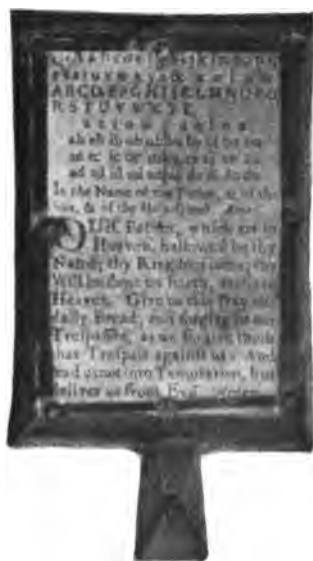 abcdefghijklmnopq
rstuvwxyz& aeiou
ABCDEFGHIJKLMNOPQ
RSTUVWXYZ.
a e i o u a e i o u
ab eb ib ob ub ba be bi bo bu
ac ec ic oc uc ca ce ci co cu
ad ed id od ud da de di do du
In the Name of the Father, & of the
Son, & of the Holy Ghost. Amen.
OUR Father, which art in
Heaven, hallowed be thy
Name; thy Kingdom come, thy
Will be done on Earth, as it is in
Heaven. Give us this Day our
daily Bread; and forgive us our
Trespasses, as we forgive them
that Trespass against us: And
lead us not into Temptation, but
deliver us from Evil. Amen.